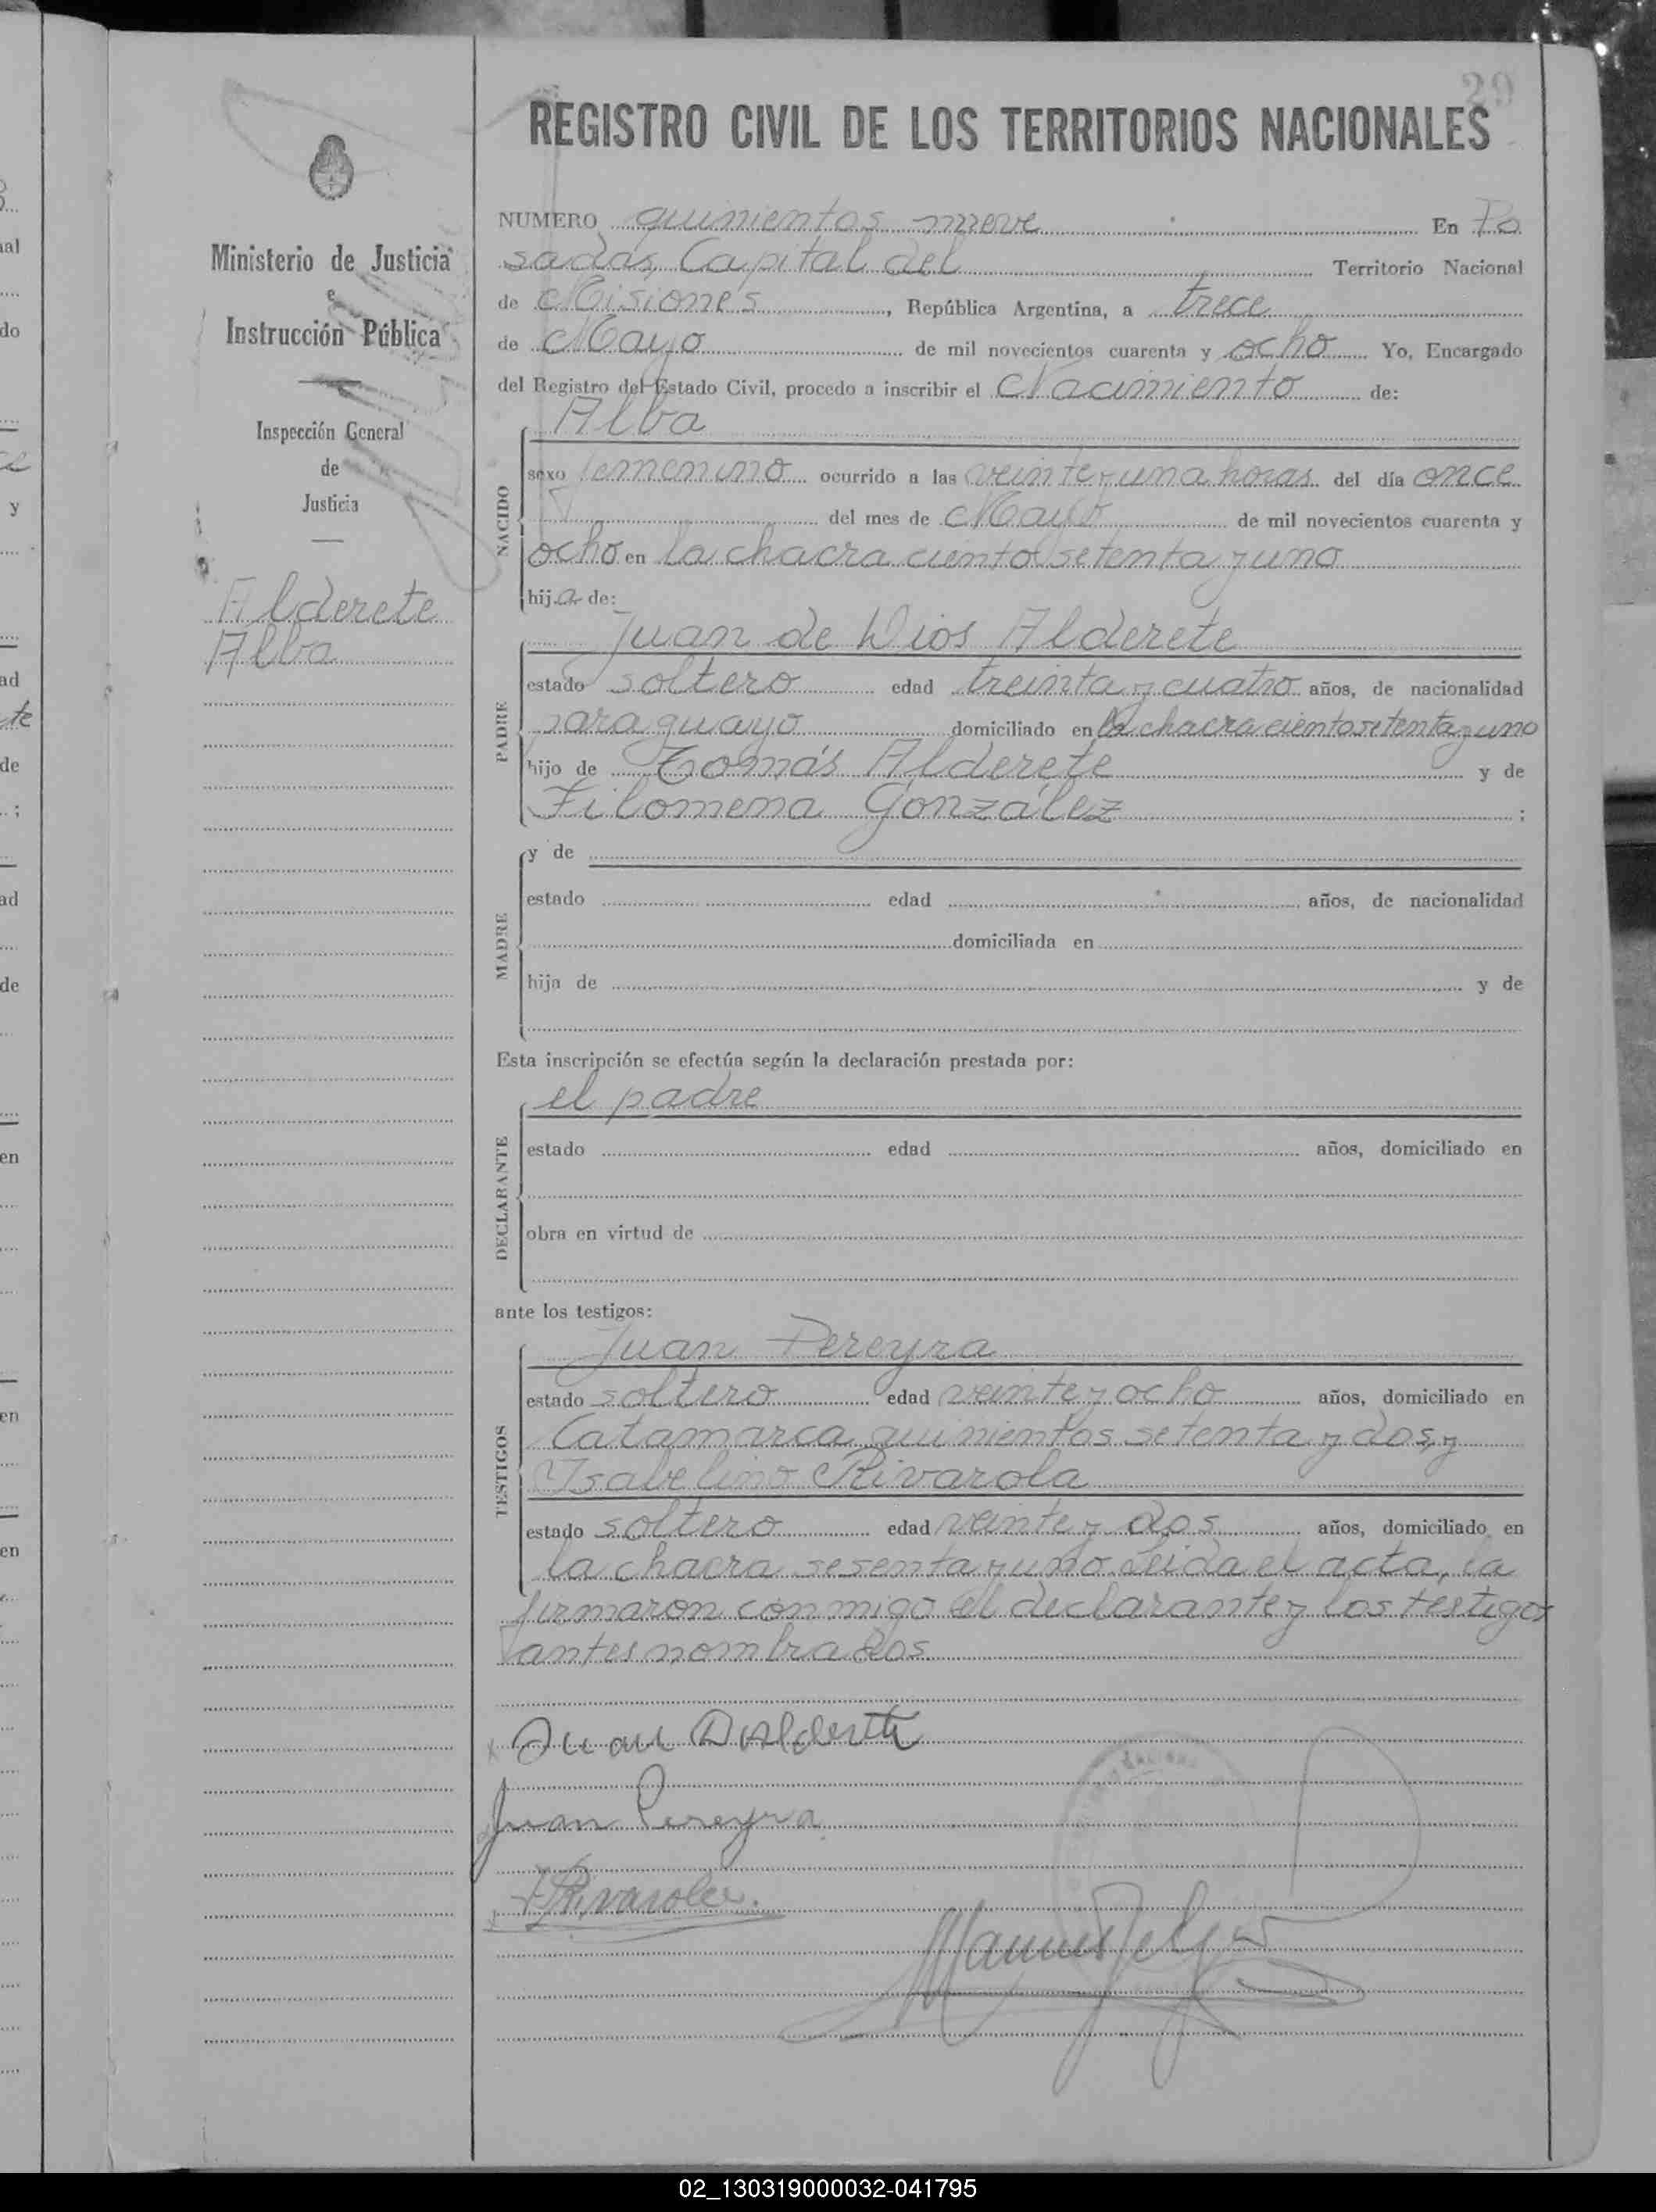 29
REGISTRO CIVIL DE LOS TERRITORIOS NACIONALES
Ministerio de Justicia
e
Instrucción Pública
Inspección General
de
Justicia
Alderete
Alba
NUMERO quinientos nueve En Po
sadas, Capital del Territorio Nacional
de Misiones, República Argentina, a trece
de Mayo de mil novecientos cuarenta y ocho Yo, Encargado
del Registro del Estado Civil, procedo a inscribir el Nacimiento de:
Alba
NACIDO
sexo femenino ocurrido a las veinte y una horas del día once
del mes de Mayo de mil novecientos cuarenta y
ocho en la chacra ciento setenta y uno
hija de:
Juan de Dios Alderete
PADRE
estado soltero edad treinta y cuatro años, de nacionalidad
paraguayo domiciliado en la chacra ciento setenta y uno
hijo de Tomás Alderete y de
Filomena González ;
MADRE
y de
estado edad años, de nacionalidad
domiciliada en
hija de y de
Esta inscripción se efectúa según la declaración prestada por:
el padre
DECLARANTE
estado edad años, domiciliado en
obra en virtud de
ante los testigos:
Juan Pereyra
TESTIGOS
estado soltero edad veinte y ocho años, domiciliado en
Catamarca quinientos setenta y dos, y
Ysabelino Rivarola
estado soltero edad veinte y dos años, domiciliado en
la chacra sesenta y uno. Leida el acta, la
firmaron conmigo el declarante y los testigos
antes nombrados
Juan D Alderete
Juan Pereyra
Y Rivarola.
02_130319000032-041795